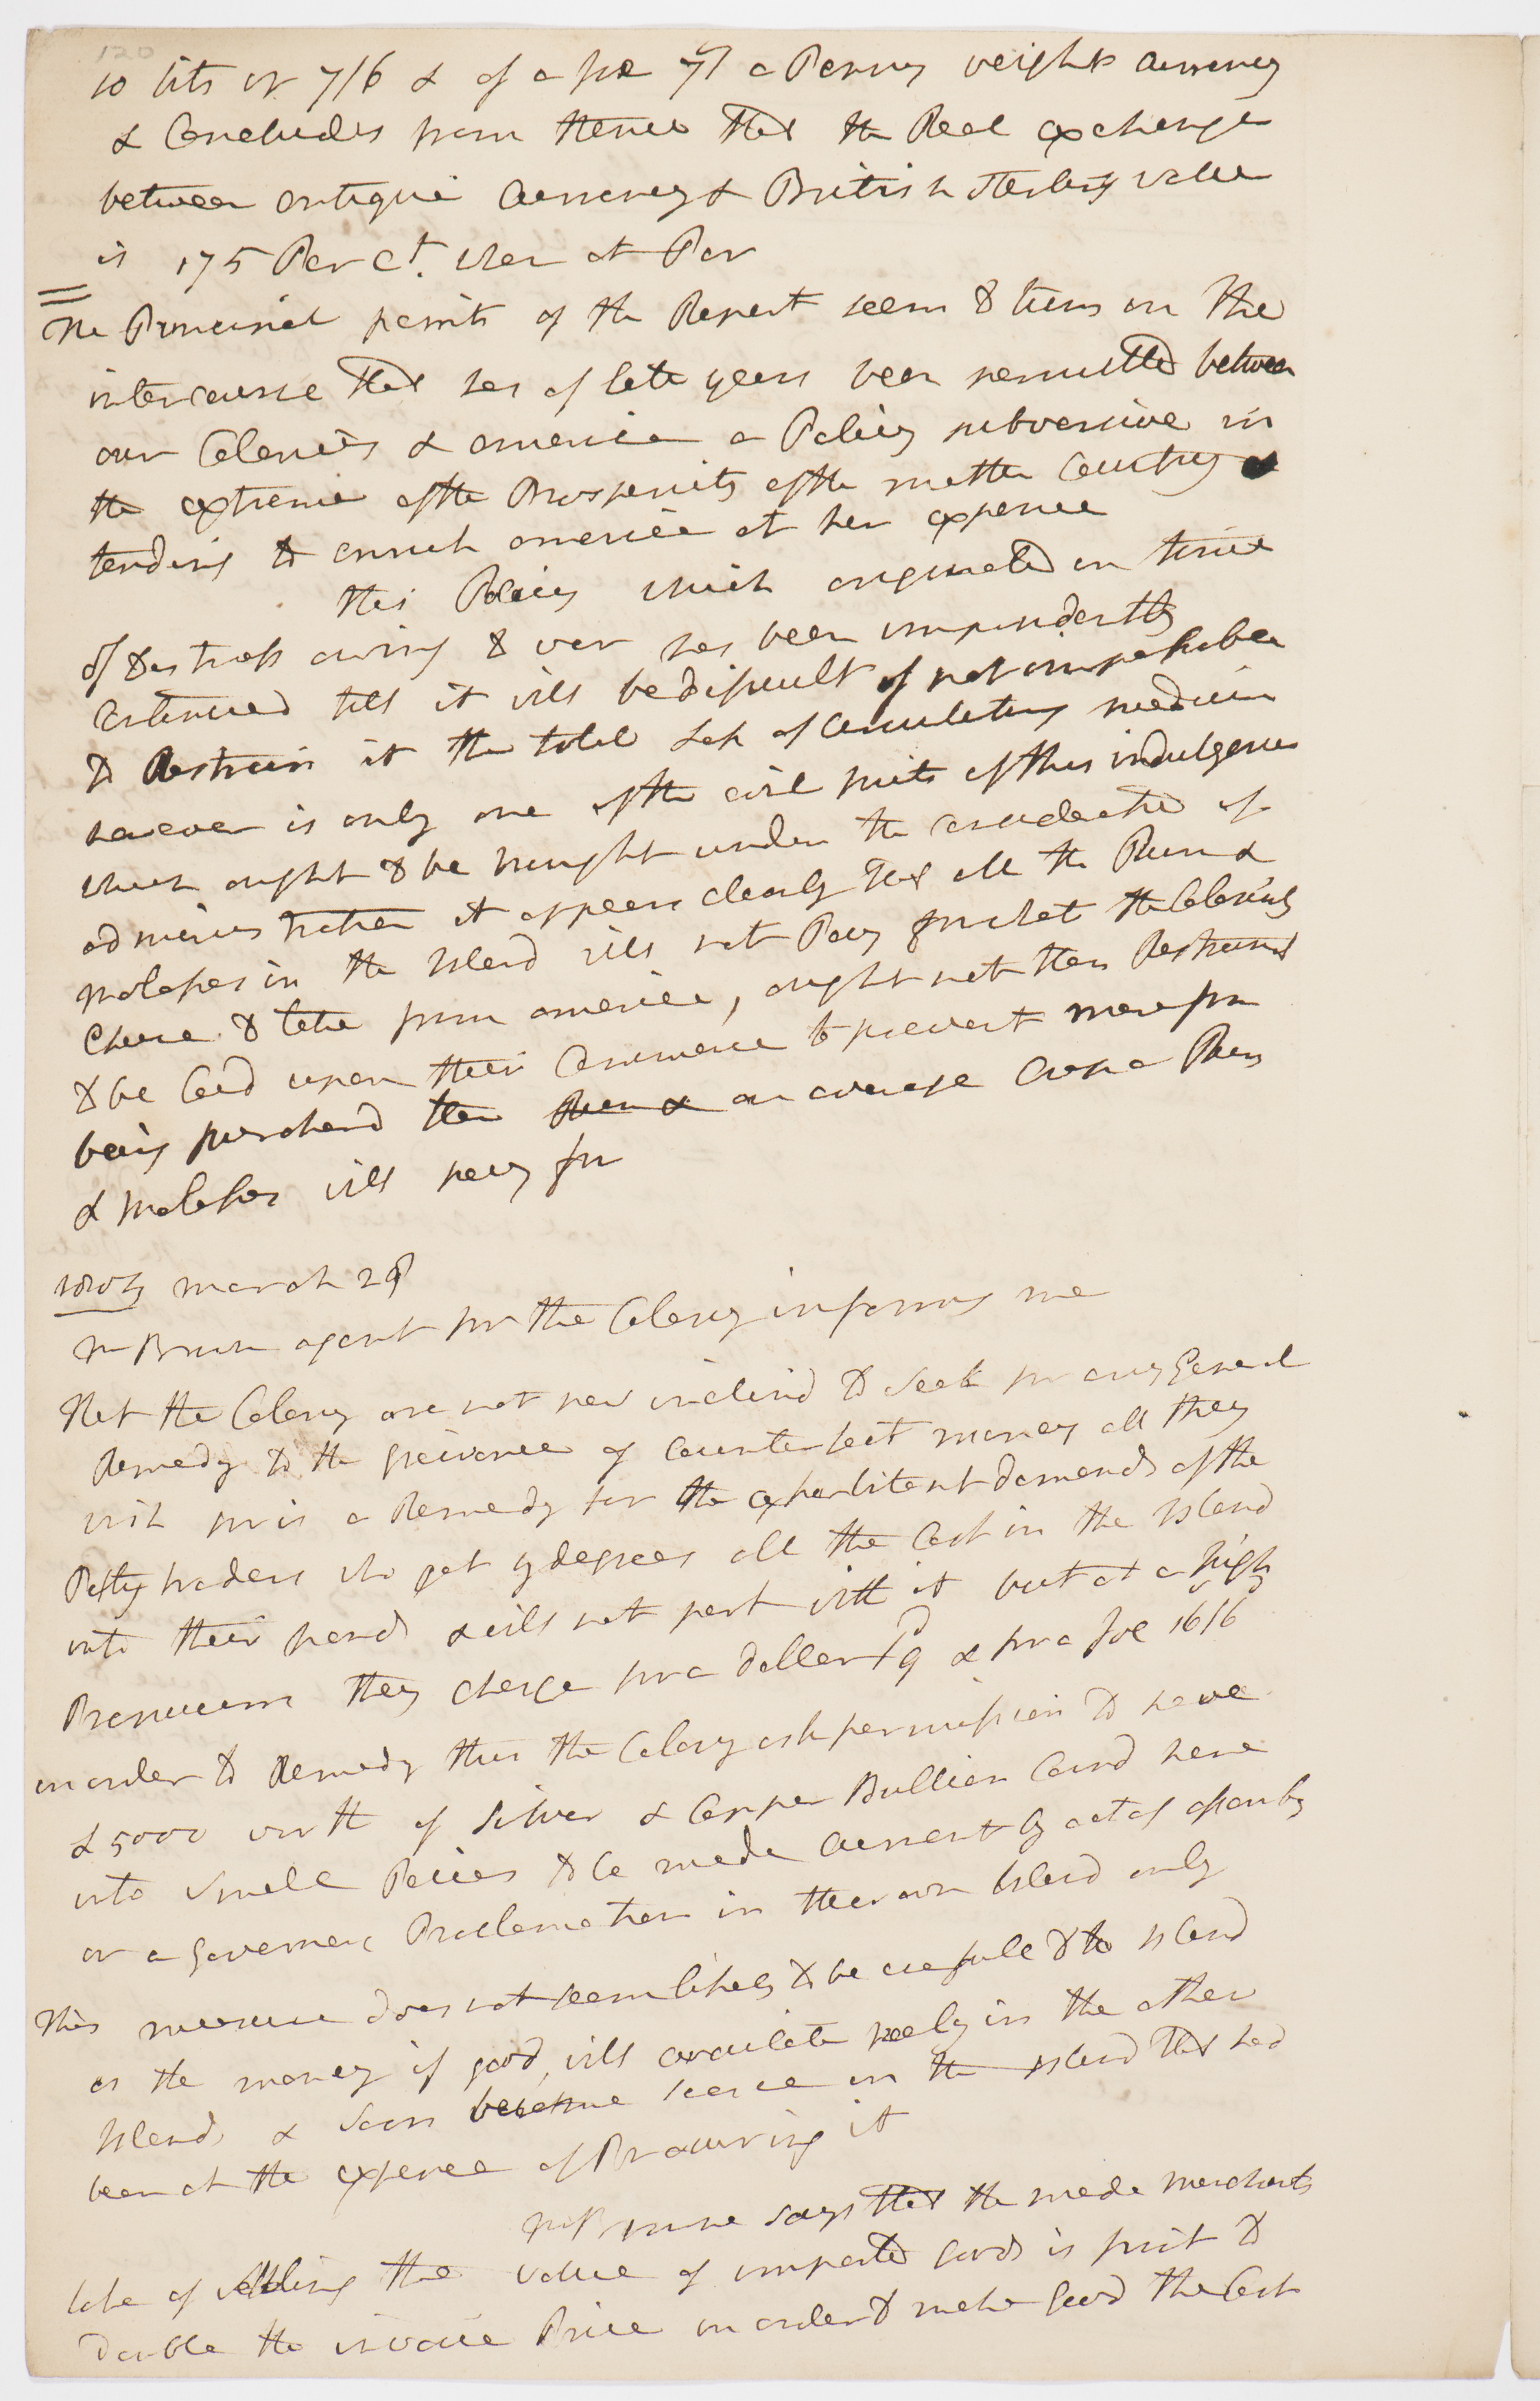 120
10 bits or 7/6 & of a Joe 7/ a Penny weight currency
& Concludes from thence that the Real exchange
between antigua Currency & British Sterling value
is 175 Per Ct. when at Par
The Principal points of the Report seem to turn on the
intercourse that has of late years been permitted between
our Colonies & america a Policy subversive in
the extreme of the Prosperity of the mother Country &
tending to enrich america at her expence
this Policy which originated in time
of distress owing to war has been imprudently
continued till it will be dificult if not impossible
to Restrain it the total Loss of Circulating medium
however is only one of the evil fruits of this indulgence
which ought to be brought under the consideration of
administration it appears clearly that all the Rum &
molasses in the Island will not Pay for what the Colonists
chuse to take from america, ought not then Restraint
to be laid upon their Commerce to prevent more from
being purchasd than Rum & an average Crop of Rum
& molasses will pay for
march 29
Mr Brown agent for the Colony informs me
that the Colony are not now inclind to seek for any General
Remedy to the greivance of counterfeit money all they
wish for is a Remedy for the exhorbitant demands of the
Petty traders who get by degrees all the Cash in the Island
into their hands & will not part with it but at a high
Premium they charge for a dollar & for a Joe 16/6
in order to Remedy this the Colony ask permission to have
£5000 worth of Silver & Copper Bullion Coind here
into small Peices to be made current by act of assembly
or a Governers Proclamation in their own Island only
this measure does not seem likely to be usefull to the Island
as the money if good, will circulate freely in the other
Islands & soon become scarce in the Island that had
been at the expence of Procuring it
Mr Brown says that the mode merchants
take of settling the value of imported goods is first to
double the invoice Price in order to make good the Cost